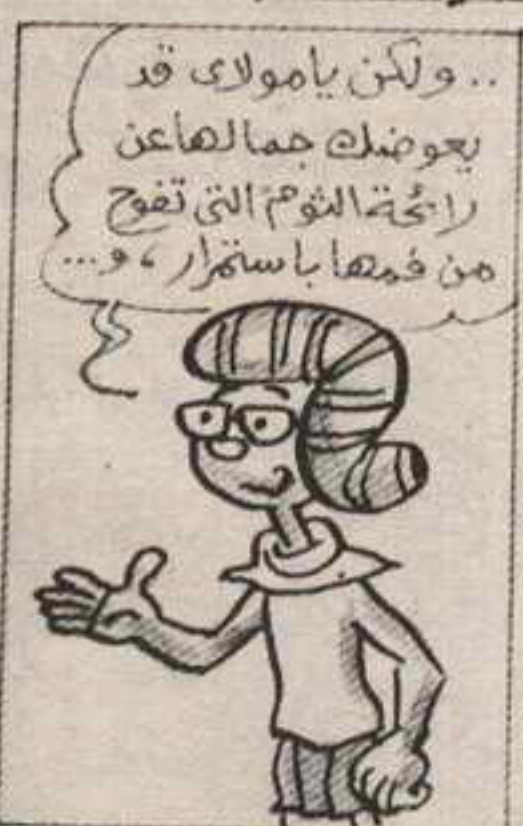 .. ولكن يا مولاى قد
يعوضك جمالها عن
رائحة الثوم التى تفوح
من فمها باستمرار ، و...